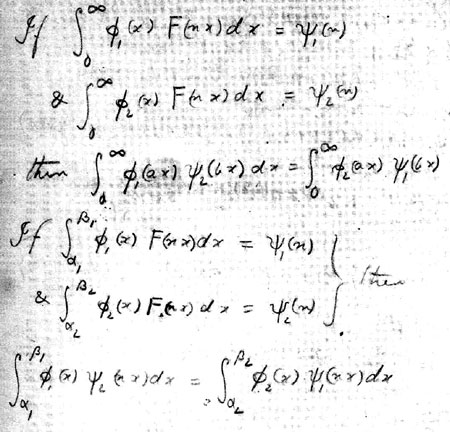 If ∫₀^∞ ϕ₁(x) F(nx) dx = ψ₁(n)
& ∫₀^∞ ϕ₂(x) F(nx) dx = ψ₂(n)
then ∫₀^∞ ϕ₁(ax) ψ₂(bx) dx = ∫₀^∞ ϕ₂(ax) ψ₁(bx)
If ∫_{α₁}^{β₁} ϕ₁(x) F(nx) dx = ψ₁(n)
& ∫_{α₂}^{β₂} ϕ₂(x) F(nx) dx = ψ₂(n) } then
∫_{α₁}^{β₁} ϕ₁(x) ψ₂(nx) dx = ∫_{α₂}^{β₂} ϕ₂(x) ψ₁(nx) dx